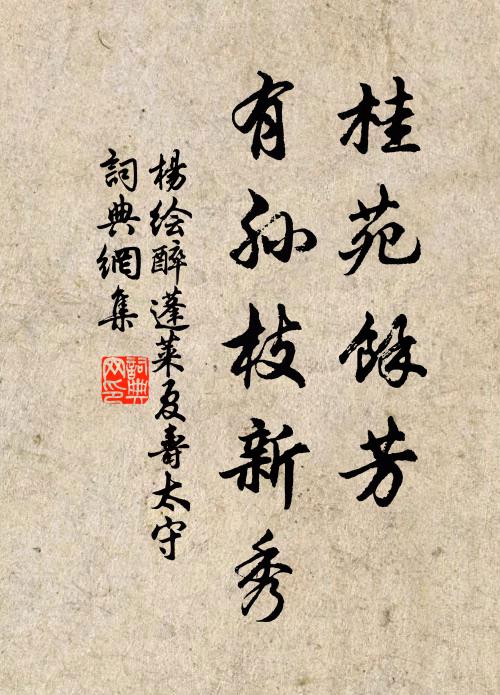 桂苑餘芳
有孙枝新秀
楊绘醉蓬莱夏壽太守
詞典網集
詞典网印